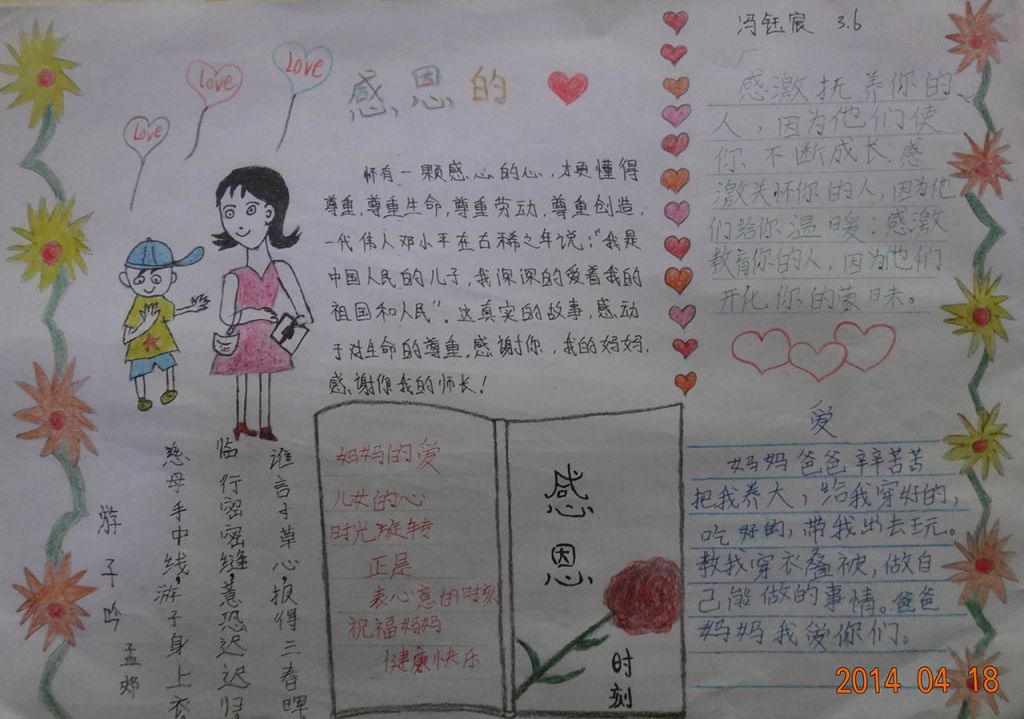 Love
Love
Love
感恩的
怀有一颗感心的心,才更懂得
尊重,尊重生命,尊重劳动,尊重创造,
一代伟人邓小平在古稀之年说:“我是
中国人民的儿子,我深深的爱着我的
祖国和人民”。这真实的故事,感动
于对生命的尊重。感谢你,我的妈妈,
感谢你我的师长!
冯钰宸 3.6
感激抚养你的
人,因为他们使
你不断成长感
激关怀你的人,因为他
们给你温暖;感激
教育你的人,因为他们
开化你的蒙昧。
游子吟
孟郊
慈母手中线,游子身上衣
临行密密缝,意恐迟迟归
谁言寸草心,报得三春晖
妈妈的爱
儿女的心
时光旋转
正是
表心意的时刻
祝福妈妈
健康快乐
感恩
时刻
爱
妈妈爸爸辛辛苦苦
把我养大,给我穿好的,
吃好的,带我出去玩。
教我穿衣叠被,做自
己能做的事情。爸爸
妈妈我爱你们。
2014 04 18